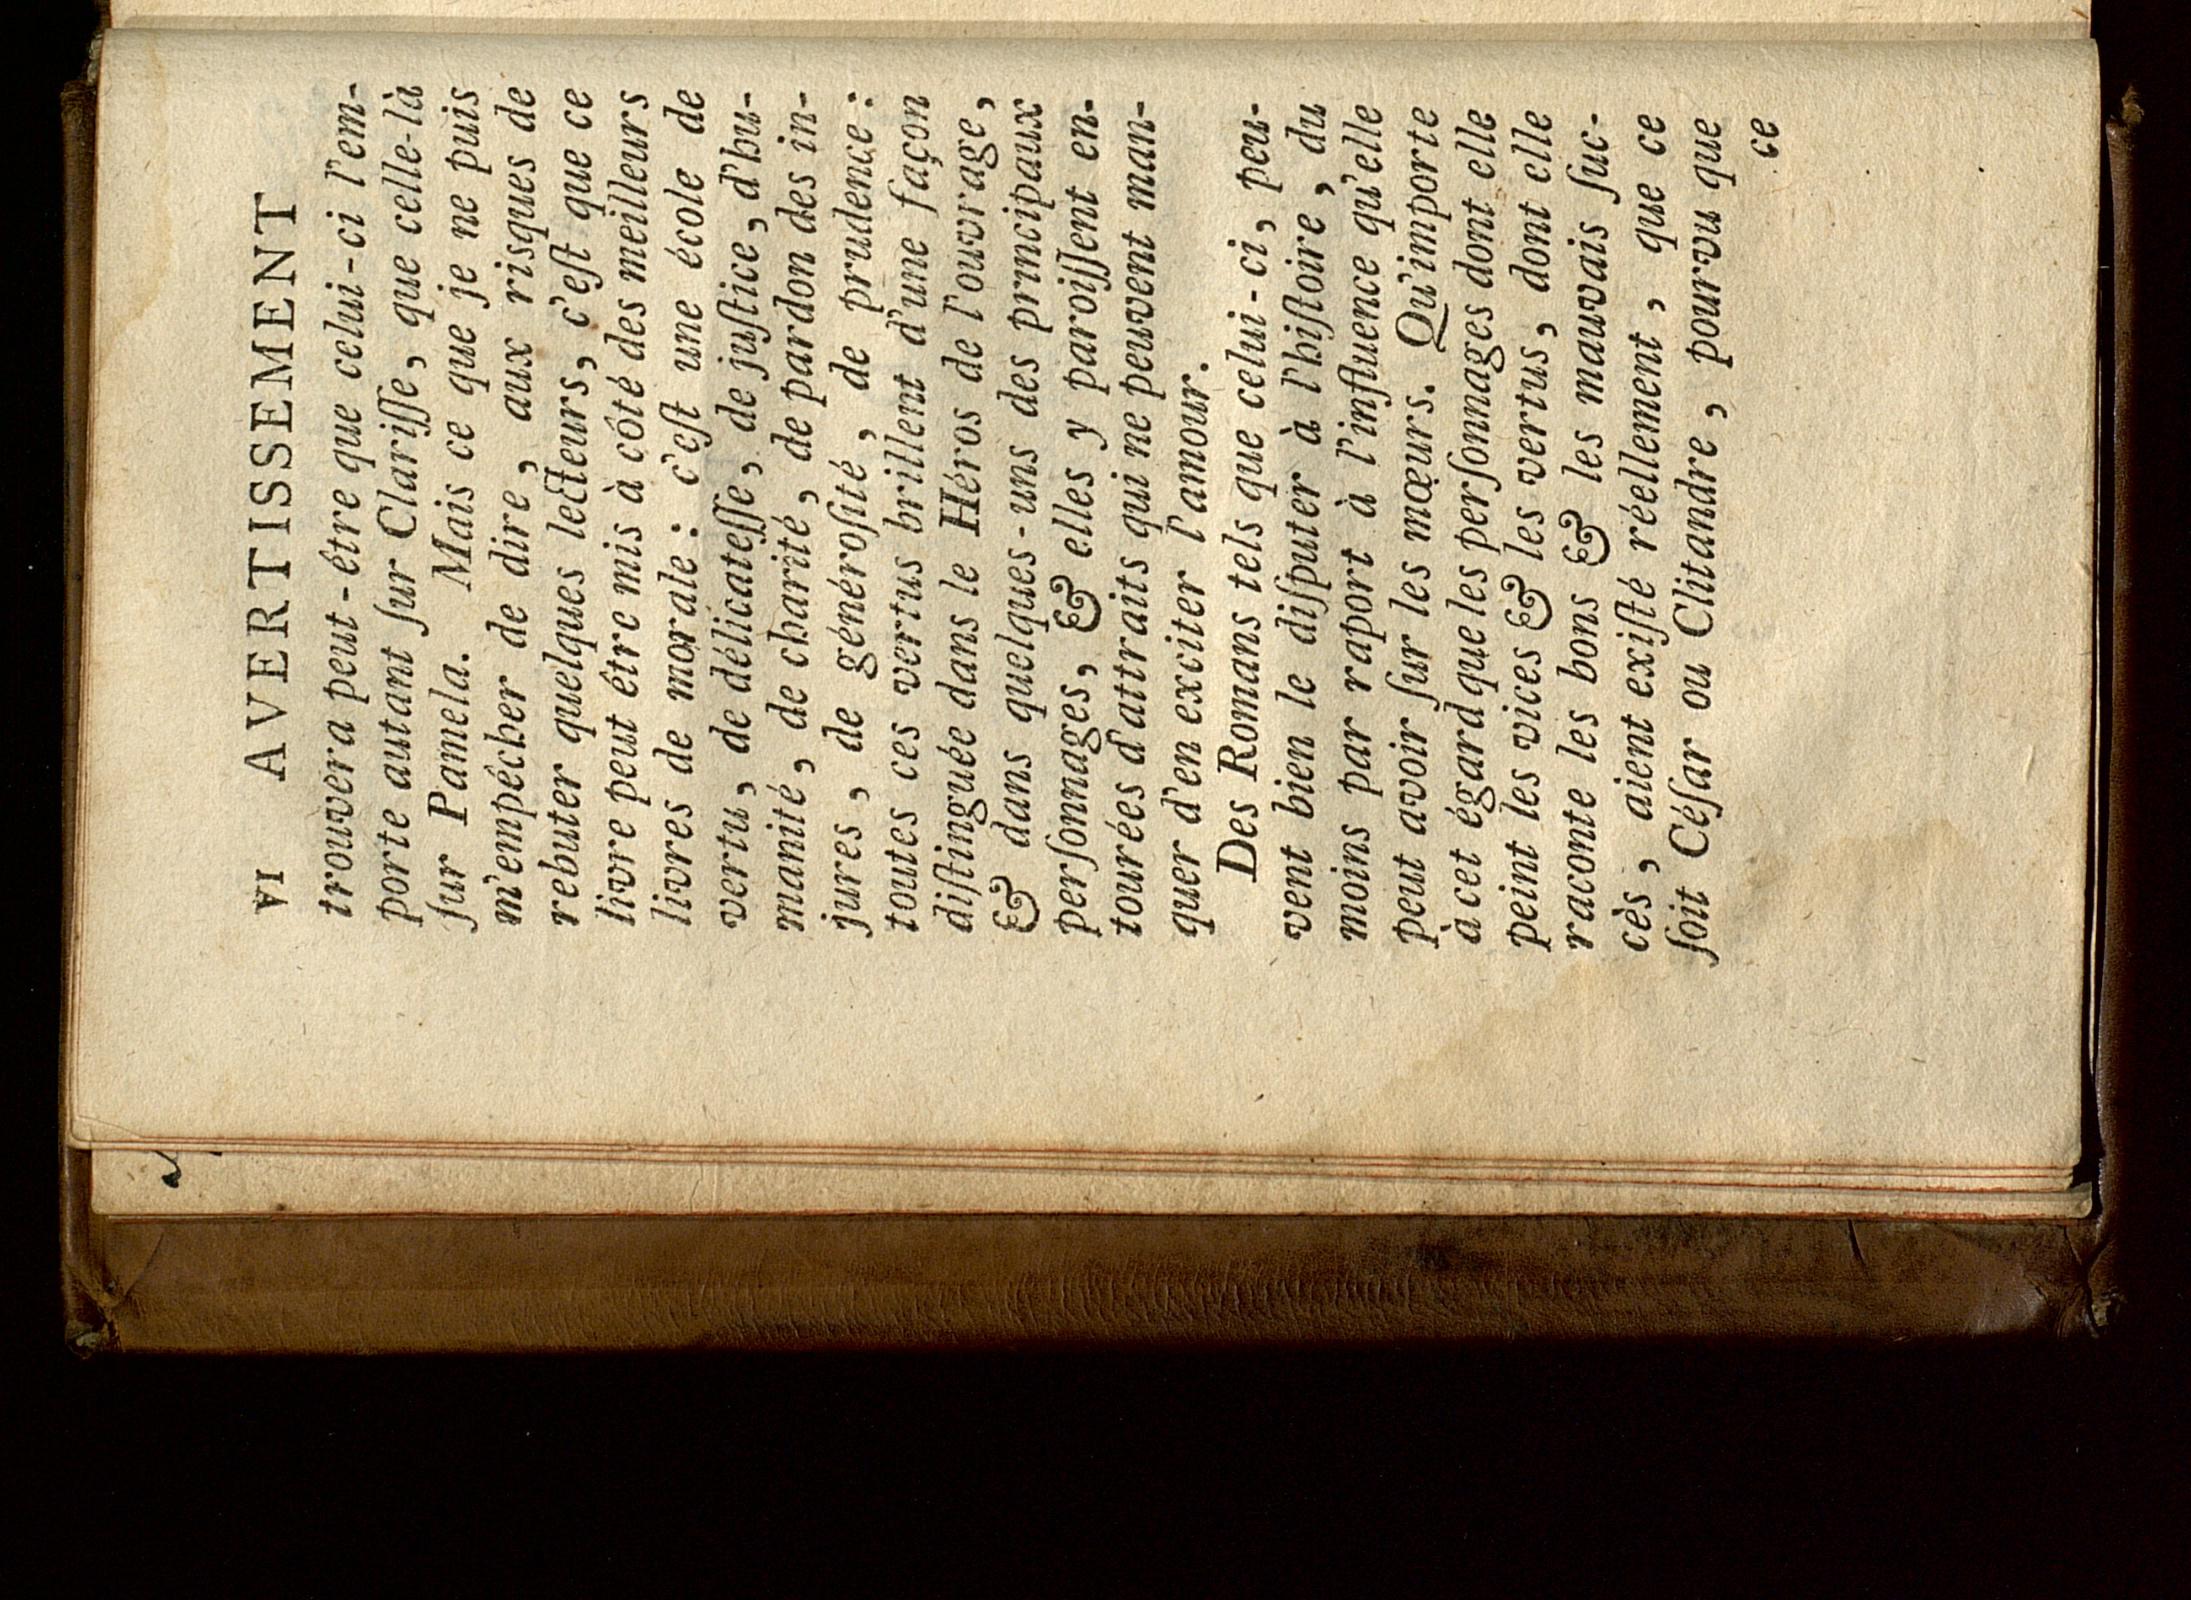 VI AVERTISSEMENT
trouvera peut-être que celui-ci l'em-
porte autant ſur Clariſſe, que celle-là
ſur Pamela. Mais ce que je ne puis
m'empécher de dire, aux risques de
rebuter quelques lecteurs, c'eſt que ce
livre peut étre mis à côté des meilleurs
livres de morale: c'eſt une école de
vertu, de délicateſſe, de juſtice, d'hu-
manité, de charité, de pardon des in-
jures, de généroſité, de prudence:
toutes ces vertus brillent d'une façon
diſtinguée dans le Héros de l'ouvrage,
& dans quelques-uns des principaux
perſonnages, & elles y paroiſſent en-
tourées d'attraits qui ne peuvent man-
quer d'en exciter l'amour.
Des Romans tels que celui-ci, peu-
vent bien le diſputer à l'hiſtoire, du
moins par raport à l'influence qu'elle
peut avoir ſur les mœurs. Qu'importe
à cet égard que les perſonnages dont elle
peint les vices & les vertus, dont elle
raconte les bons & les mauvais ſuc-
cès, aient exiſté réellement, que ce
ſoit Céſar ou Clitandre, pourvu que
ce